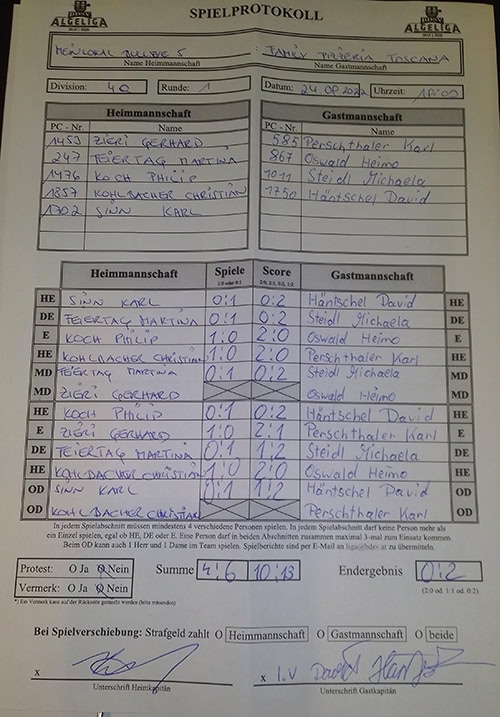 ALGELIGA SPIELPROTOKOLL ALGELIGA
MEIN LOKAL BULLS EYE 5 : FAMILY PIZZERIA TOSCANA
Name Heimmannschaft Name Gastmannschaft
Division: 4Q Runde: 1 Datum: 24.09.2022 Uhrzeit: 18:00
Heimmannschaft Gastmannschaft
PC - Nr. Name PC - Nr. Name
1453 ZIERI GERHARD 585 Perschthaler Karl
247 FEIERTAG MARTINA 867 Oswald Heimo
1476 KOCH PHILIP 1011 Steidl Michaela
1857 KOHLBACHER CHRISTIAN 1750 Häntschel David
1302 SINN KARL
Heimmannschaft Spiele Score Gastmannschaft
1:0 oder 0:1 2:0, 2:1, 0:2, 1:2
HE SINN KARL 0:1 0:2 Häntschel David HE
DE FEIERTAG MARTINA 0:1 0:2 Steidl Michaela DE
E KOCH PHILIP 1:0 2:0 Oswald Heimo E
HE KOHLBACHER CHRISTIAN 1:0 2:0 Perschthaler Karl HE
MD FEIERTAG MARTINA 0:1 0:2 Steidl Michaela MD
MD ZIERI GERHARD Oswald Heimo MD
HE KOCH PHILIP 0:1 0:2 Häntschel David HE
E ZIERI GERHARD 1:0 2:1 Perschthaler Karl E
DE FEIERTAG MARTINA 0:1 1:2 Steidl Michaela DE
HE KOHLBACHER CHRISTIAN 1:0 2:0 Oswald Heimo HE
OD SINN KARL 0:1 1:2 Häntschel David OD
OD KOHLBACHER CHRISTIAN Perschthaler Karl OD
In jedem Spielabschnitt müssen mindestens 4 verschiedene Personen spielen. In jedem Spielabschnitt darf keine Person mehr als
ein Einzel spielen, egal ob HE, DE oder E. Eine Person darf in beiden Abschnitten zusammen maximal 3-mal zum Einsatz kommen.
Beim OD kann auch 1 Herr und 1 Dame im Team spielen. Spielberichte sind per E-Mail an liga@bdsv.at zu übermitteln.
Protest: O Ja O Nein Summe 4:6 10:13 Endergebnis 0:2
Vermerk: O Ja O Nein (2:0 od. 1:1 od. 0:2)
*) Ein Vermerk kann auf der Rückseite gemacht werden (bitte mitsenden)
Bei Spielverschiebung: Strafgeld zahlt O Heimmannschaft O Gastmannschaft O beide
x x I.V David
Unterschrift Heimkapitän Unterschrift Gastkapitän